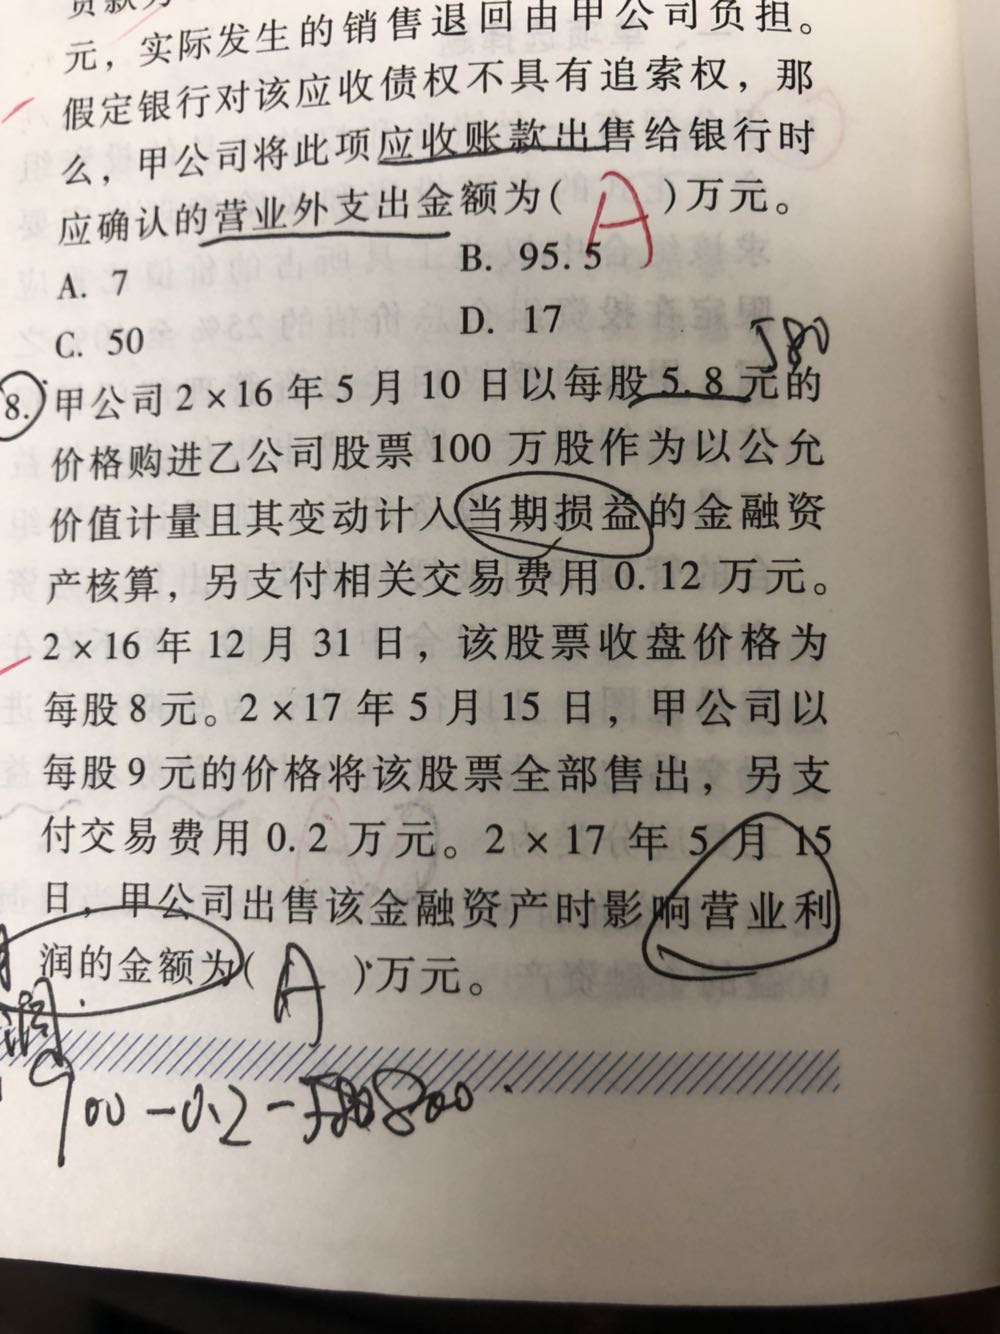 元，实际发生的销售退回由甲公司负担。
假定银行对该应收债权不具有追索权，那
么，甲公司将此项应收账款出售给银行时
应确认的营业外支出金额为( A )万元。
A. 7 B. 95.5
C. 50 D. 17
580
8. 甲公司2×16年5月10日以每股5.8元的
价格购进乙公司股票100万股作为以公允
价值计量且其变动计入当期损益的金融资
产核算，另支付相关交易费用0.12万元。
2×16年12月31日，该股票收盘价格为
每股8元。2×17年5月15日，甲公司以
每股9元的价格将该股票全部售出，另支
付交易费用0.2万元。2×17年5月15
日，甲公司出售该金融资产时影响营业利
润的金额为( A )万元。
900-0.2-580 800